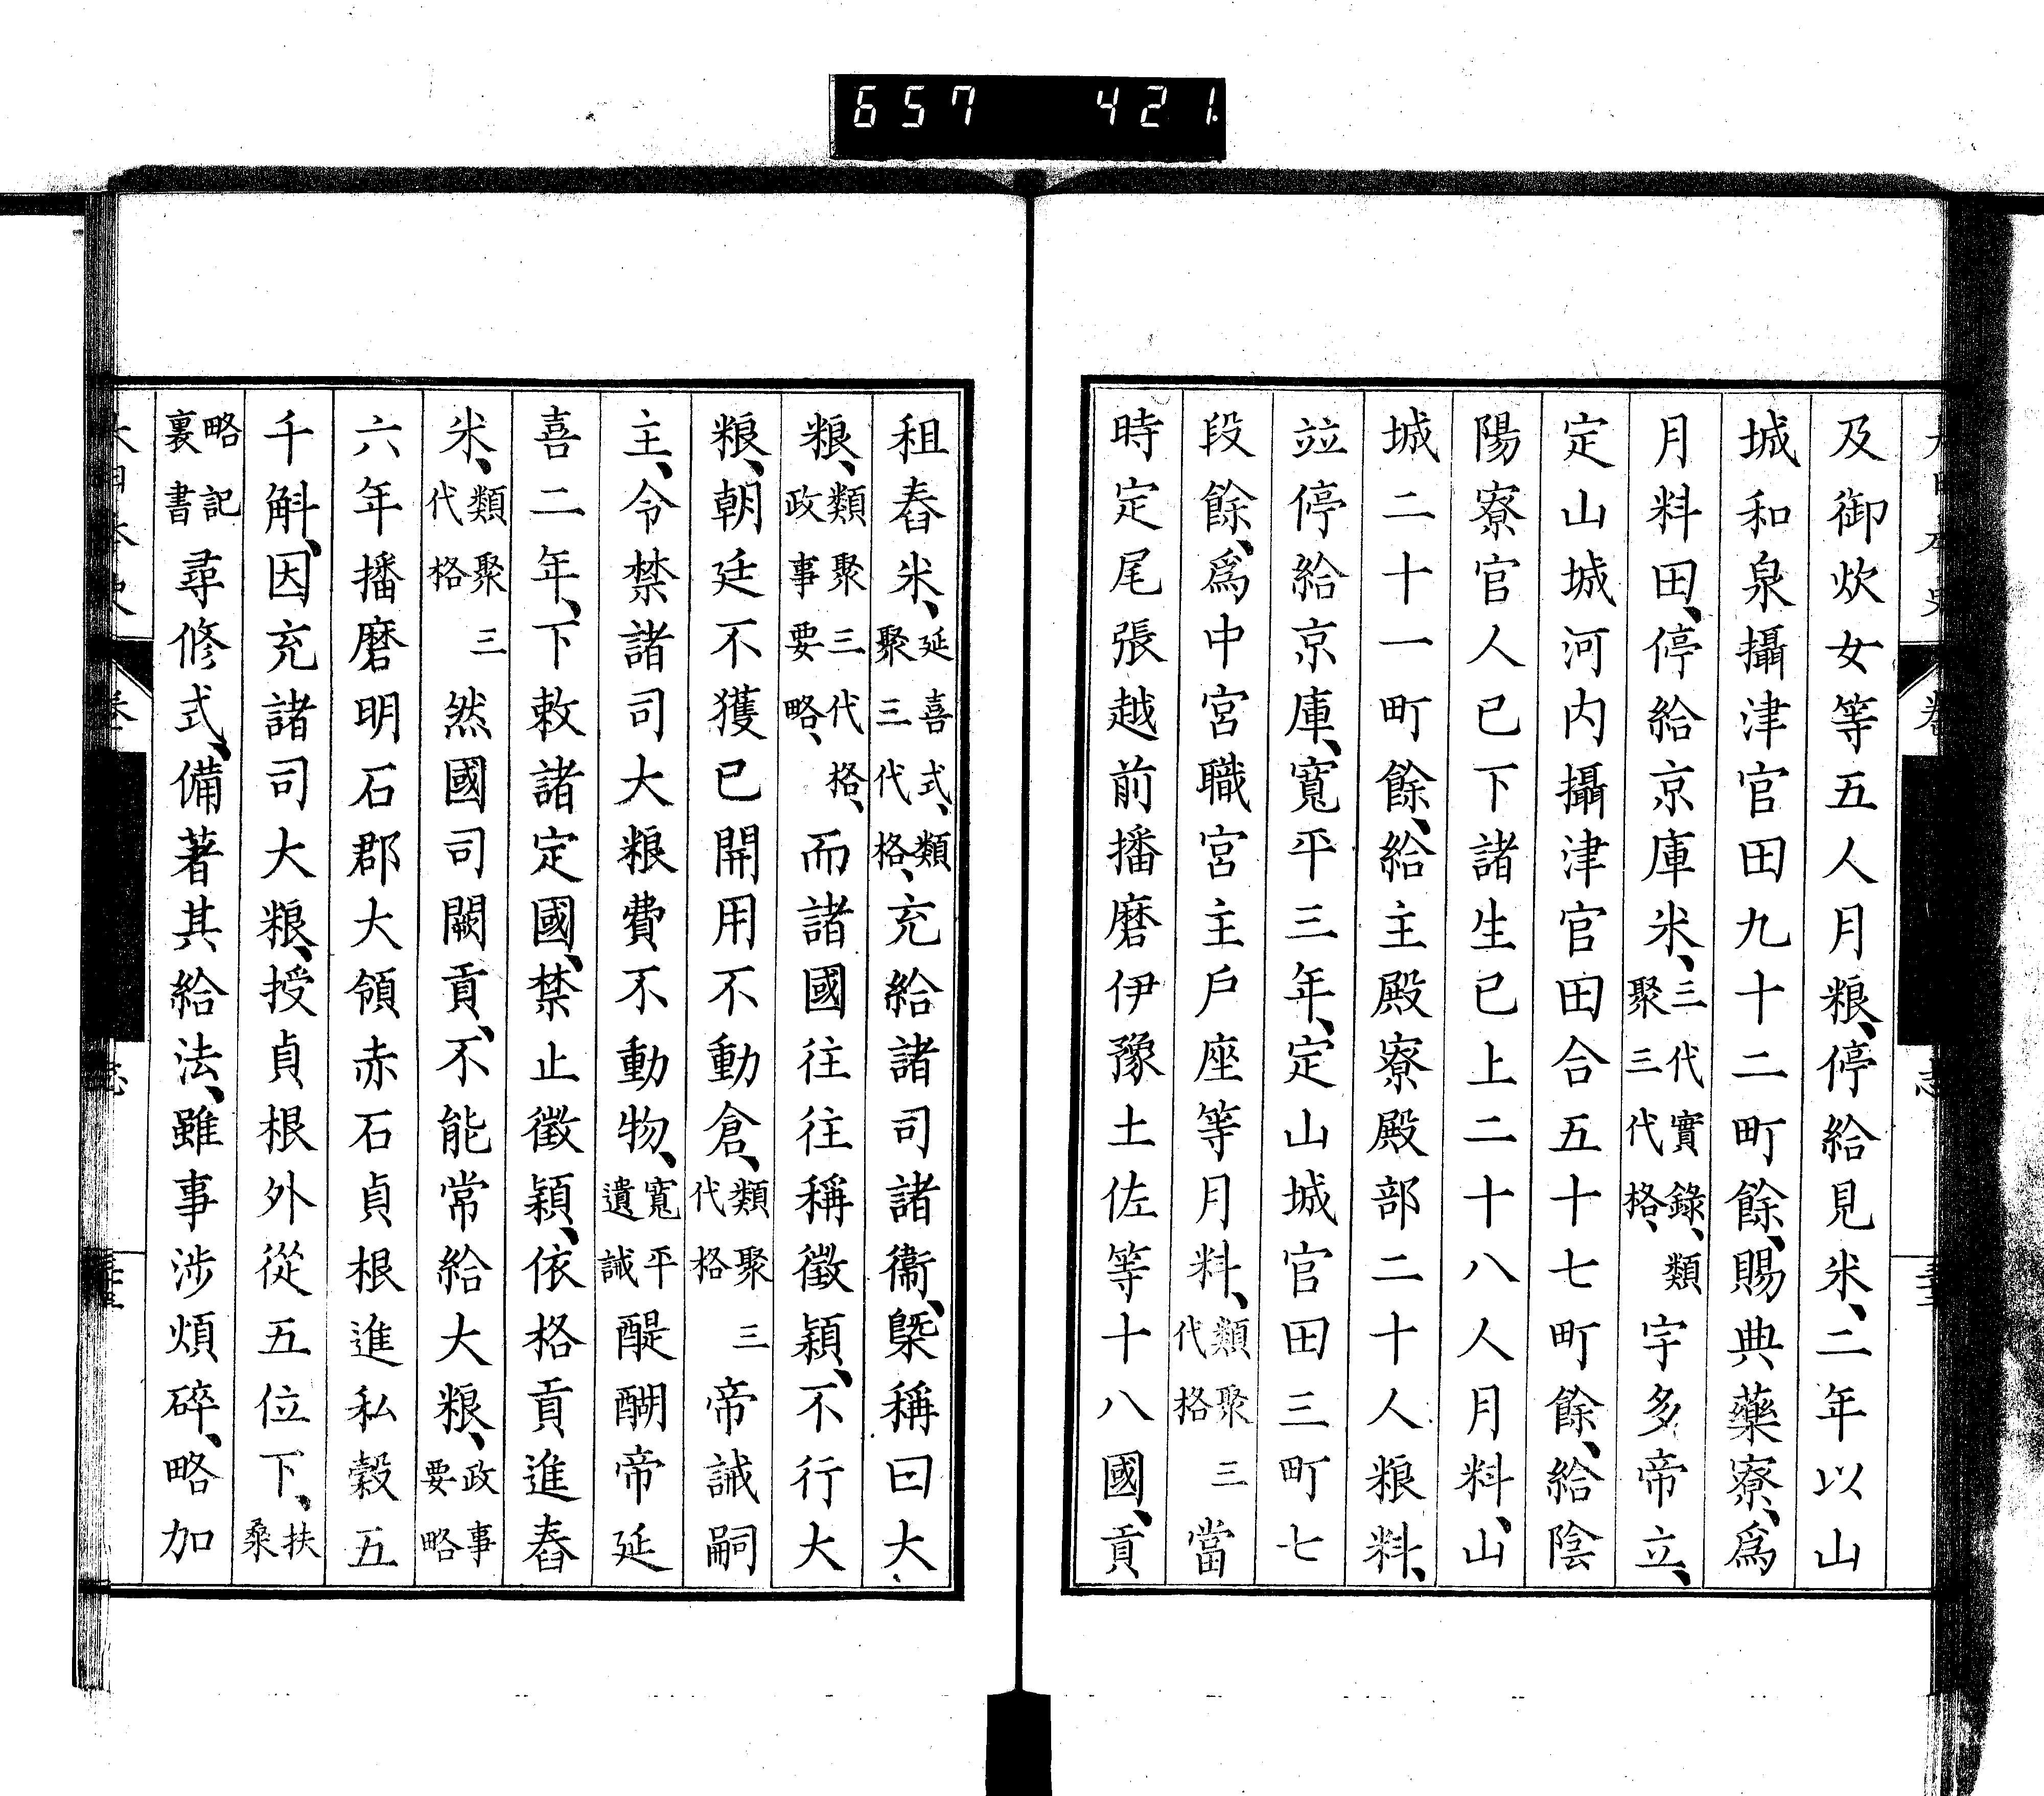 657 421
及御炊女等五人月粮、停給見米、二年以山
城和泉攝津官田九十二町餘、賜典藥寮、爲
月料田、停給京庫米、三代實錄、類聚三代格、宇多帝立、
定山城河内攝津官田合五十七町餘、給陰
陽寮官人已下諸生已上二十八人月料、山
城二十一町餘、給主殿寮殿部二十人粮料、
竝停給京庫、寬平三年、定山城官田三町七
段餘、爲中宮職宮主戶座等月料、類聚三代格當
時定尾張越前播磨伊豫土佐等十八國、貢
租舂米、延喜式、類聚三代格、充給諸司諸衞、槩稱曰大
粮、類聚三代格、政事要略、而諸國往往稱徵穎、不行大
粮、朝廷不獲已開用不動倉、類聚三代格帝誡嗣
主、令禁諸司大粮費不動物、寬平遺誡醍醐帝延
喜二年、下敕諸定國、禁止徵穎、依格貢進舂
米、類聚三代格然國司闕貢、不能常給大粮、政事要略
六年播磨明石郡大領赤石貞根進私穀五
千斛、因充諸司大粮、授貞根外從五位下、扶桑
略記裏書尋修式、備著其給法、雖事涉煩碎、略加